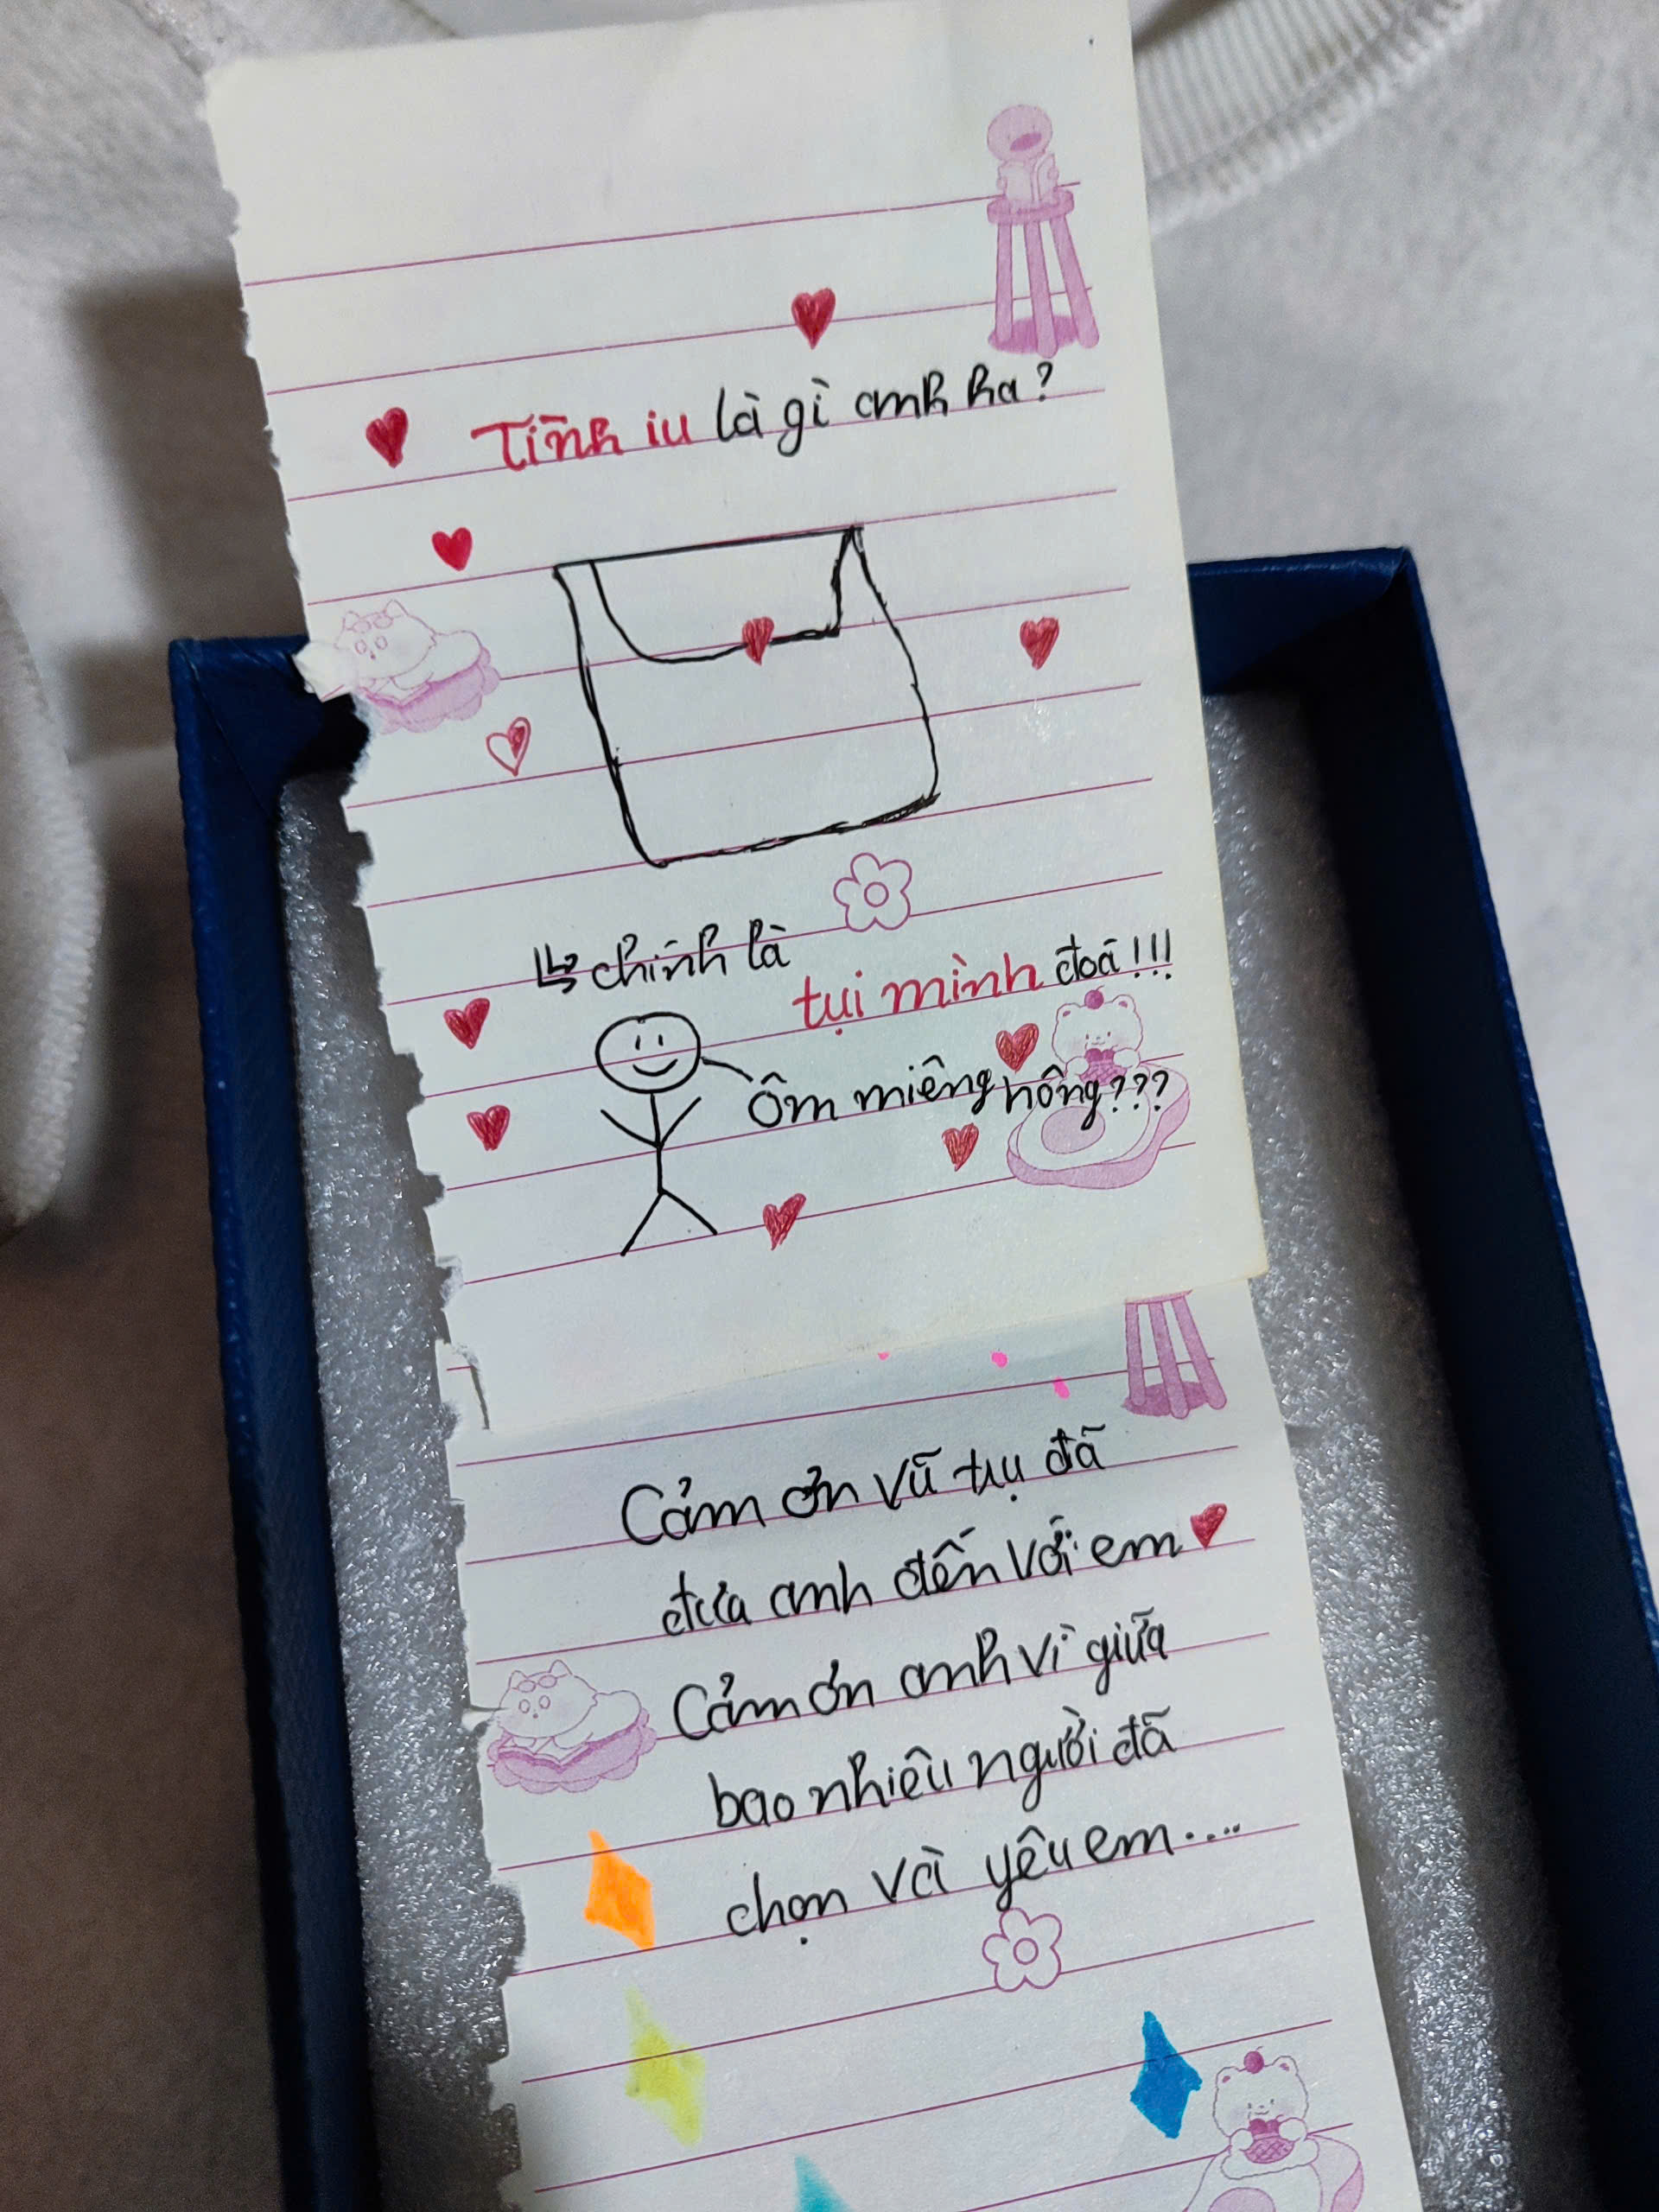 Tình iu là gì anh ha?
↳ chính là
tụi mình đoá!!!
Ôm miêng hông???
Cảm ơn vũ trụ đã
đưa anh đến với em
Cảm ơn anh vì giữa
bao nhiêu người đã
chọn và yêu em....